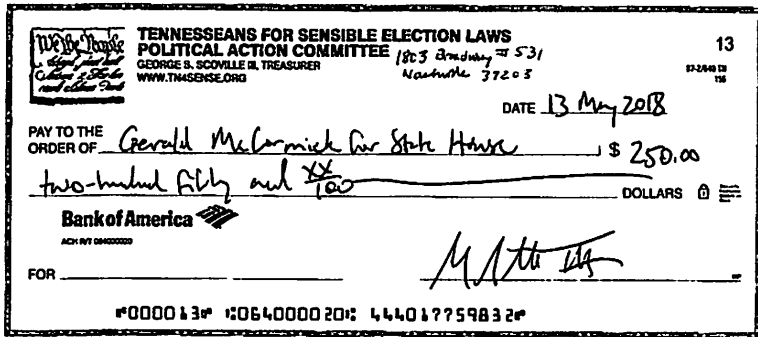 We the People
TENNESSEANS FOR SENSIBLE ELECTION LAWS
POLITICAL ACTION COMMITTEE 1803 Broadway # 531
GEORGE S. SCOVILLE III, TREASURER Nashville 37203
WWW.TN4SENSE.ORG
13
DATE 13 May 2018
PAY TO THE
ORDER OF Gerald McCormick for State House $ 250.00
two-hundred fifty and XX/100 DOLLARS
Bank of America
ACH R/T 064000020
FOR
⑈000013⑈ ⑆064000020⑆ 444017759832⑈